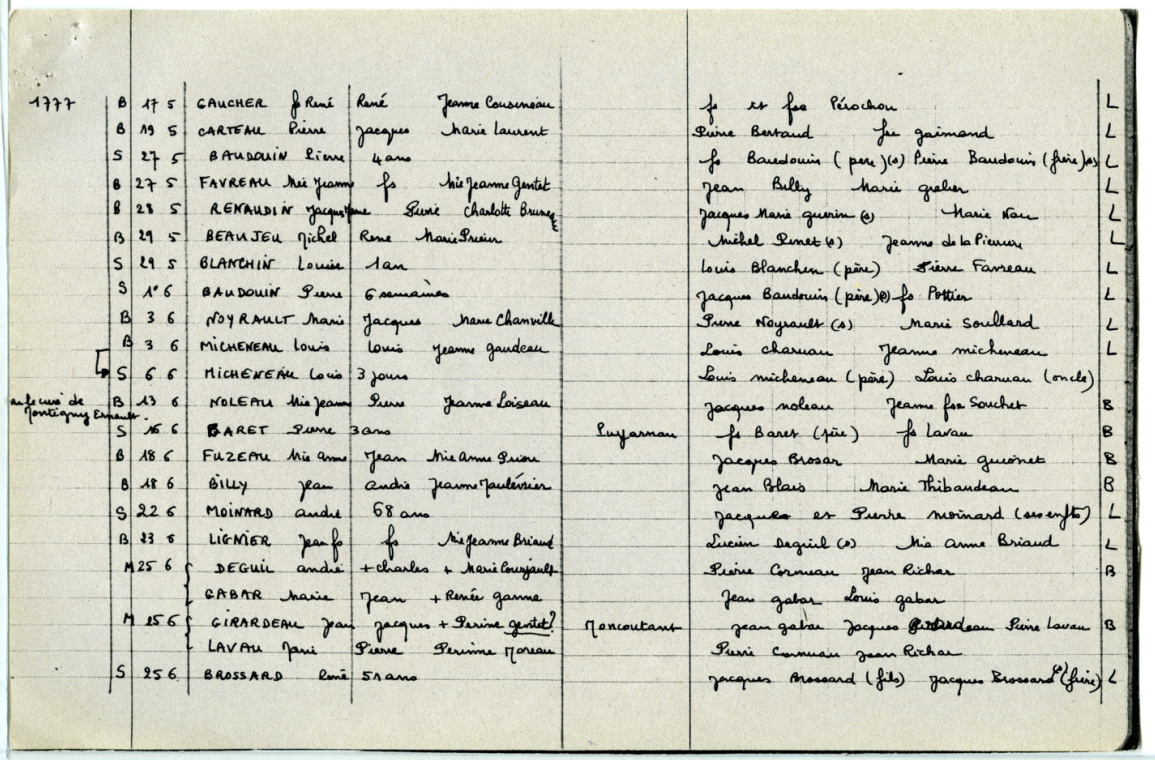 1777 B 17 5 GAUCHER fs René René Jeanne Cousineau fs et fse Pérochon L
B 19 5 CARTEAU Pierre Jacques Marie Laurent Pierre Bertaud fse gaimand L
S 27 5 BAUDOUIN Pierre 4 ans fs Baudouin (père)(s) Pierre Baudouin (frère)(s) L
B 27 5 FAVREAU Mie Jeanne fs Mie Jeanne Gentet Jean Billy Marie grelier L
B 28 5 RENAUDIN Jacques Pierre Charlotte Brunet Jacques Marie guerin (s) Marie Nau L
B 29 5 BEAUJEU Michel René Marie Prieur Michel Pinet (s) Jeanne de la L
S 29 5 BLANCHIN Louise 1 an Louis Blanchin (père) Pierre Favreau L
S 1° 6 BAUDOUIN Pierre 6 semaines Jacques Baudouin (père)(s) fs Pottier L
B 3 6 NOYRAULT Marie Jacques Marie Chanville Pierre Noyrault (s) Marie Soullard L
B 3 6 MICHENEAU Louis Louis Jeanne gaudeau Louis charuau Jeanne micheneau L
S 6 6 MICHENEAU Louis 3 jours Louis micheneau (père) Louis charuau (oncle)
B 13 6 NOLEAU Mie Jeanne Pierre Jeanne Loiseau Jacques noleau Jeanne fse Souchet B
Montigny
S 16 6 BARET Pierre 3 ans Puyarnau fs Baret (père) fs Lavau B
B 18 6 FUZEAU Mie anne Jean Mie Anne Priou Jacques Brosar Marie guionet B
B 18 6 BILLY Jean andré Jeanne Maulévrier Jean Blais Marie Thibaudeau B
S 22 6 MOINARD andré 68 ans Jacques et Pierre moinard (ses enfts) L
B 23 6 LIGNIER Jean fs fs Mie Jeanne Briaud Lucien Deguil (s) Mie Anne Briaud L
M 25 6 DEGUIL andré + charles + Marie Courjault Pierre Cormeau Jean Richar B
GABAR Marie Jean + Renée ganne Jean gabar Louis gabar
M 25 6 GIRARDEAU Jean Jacques + Perine gentet? Moncoutant Jean gabar Jacques Pierre Lavau B
LAVAU Marie Pierre Perinne Moreau Pierre Cormeau Jean Richar
S 25 6 BROSSARD René 51 ans Jacques Brossard (fils) Jacques Brossard (s) (frère) L